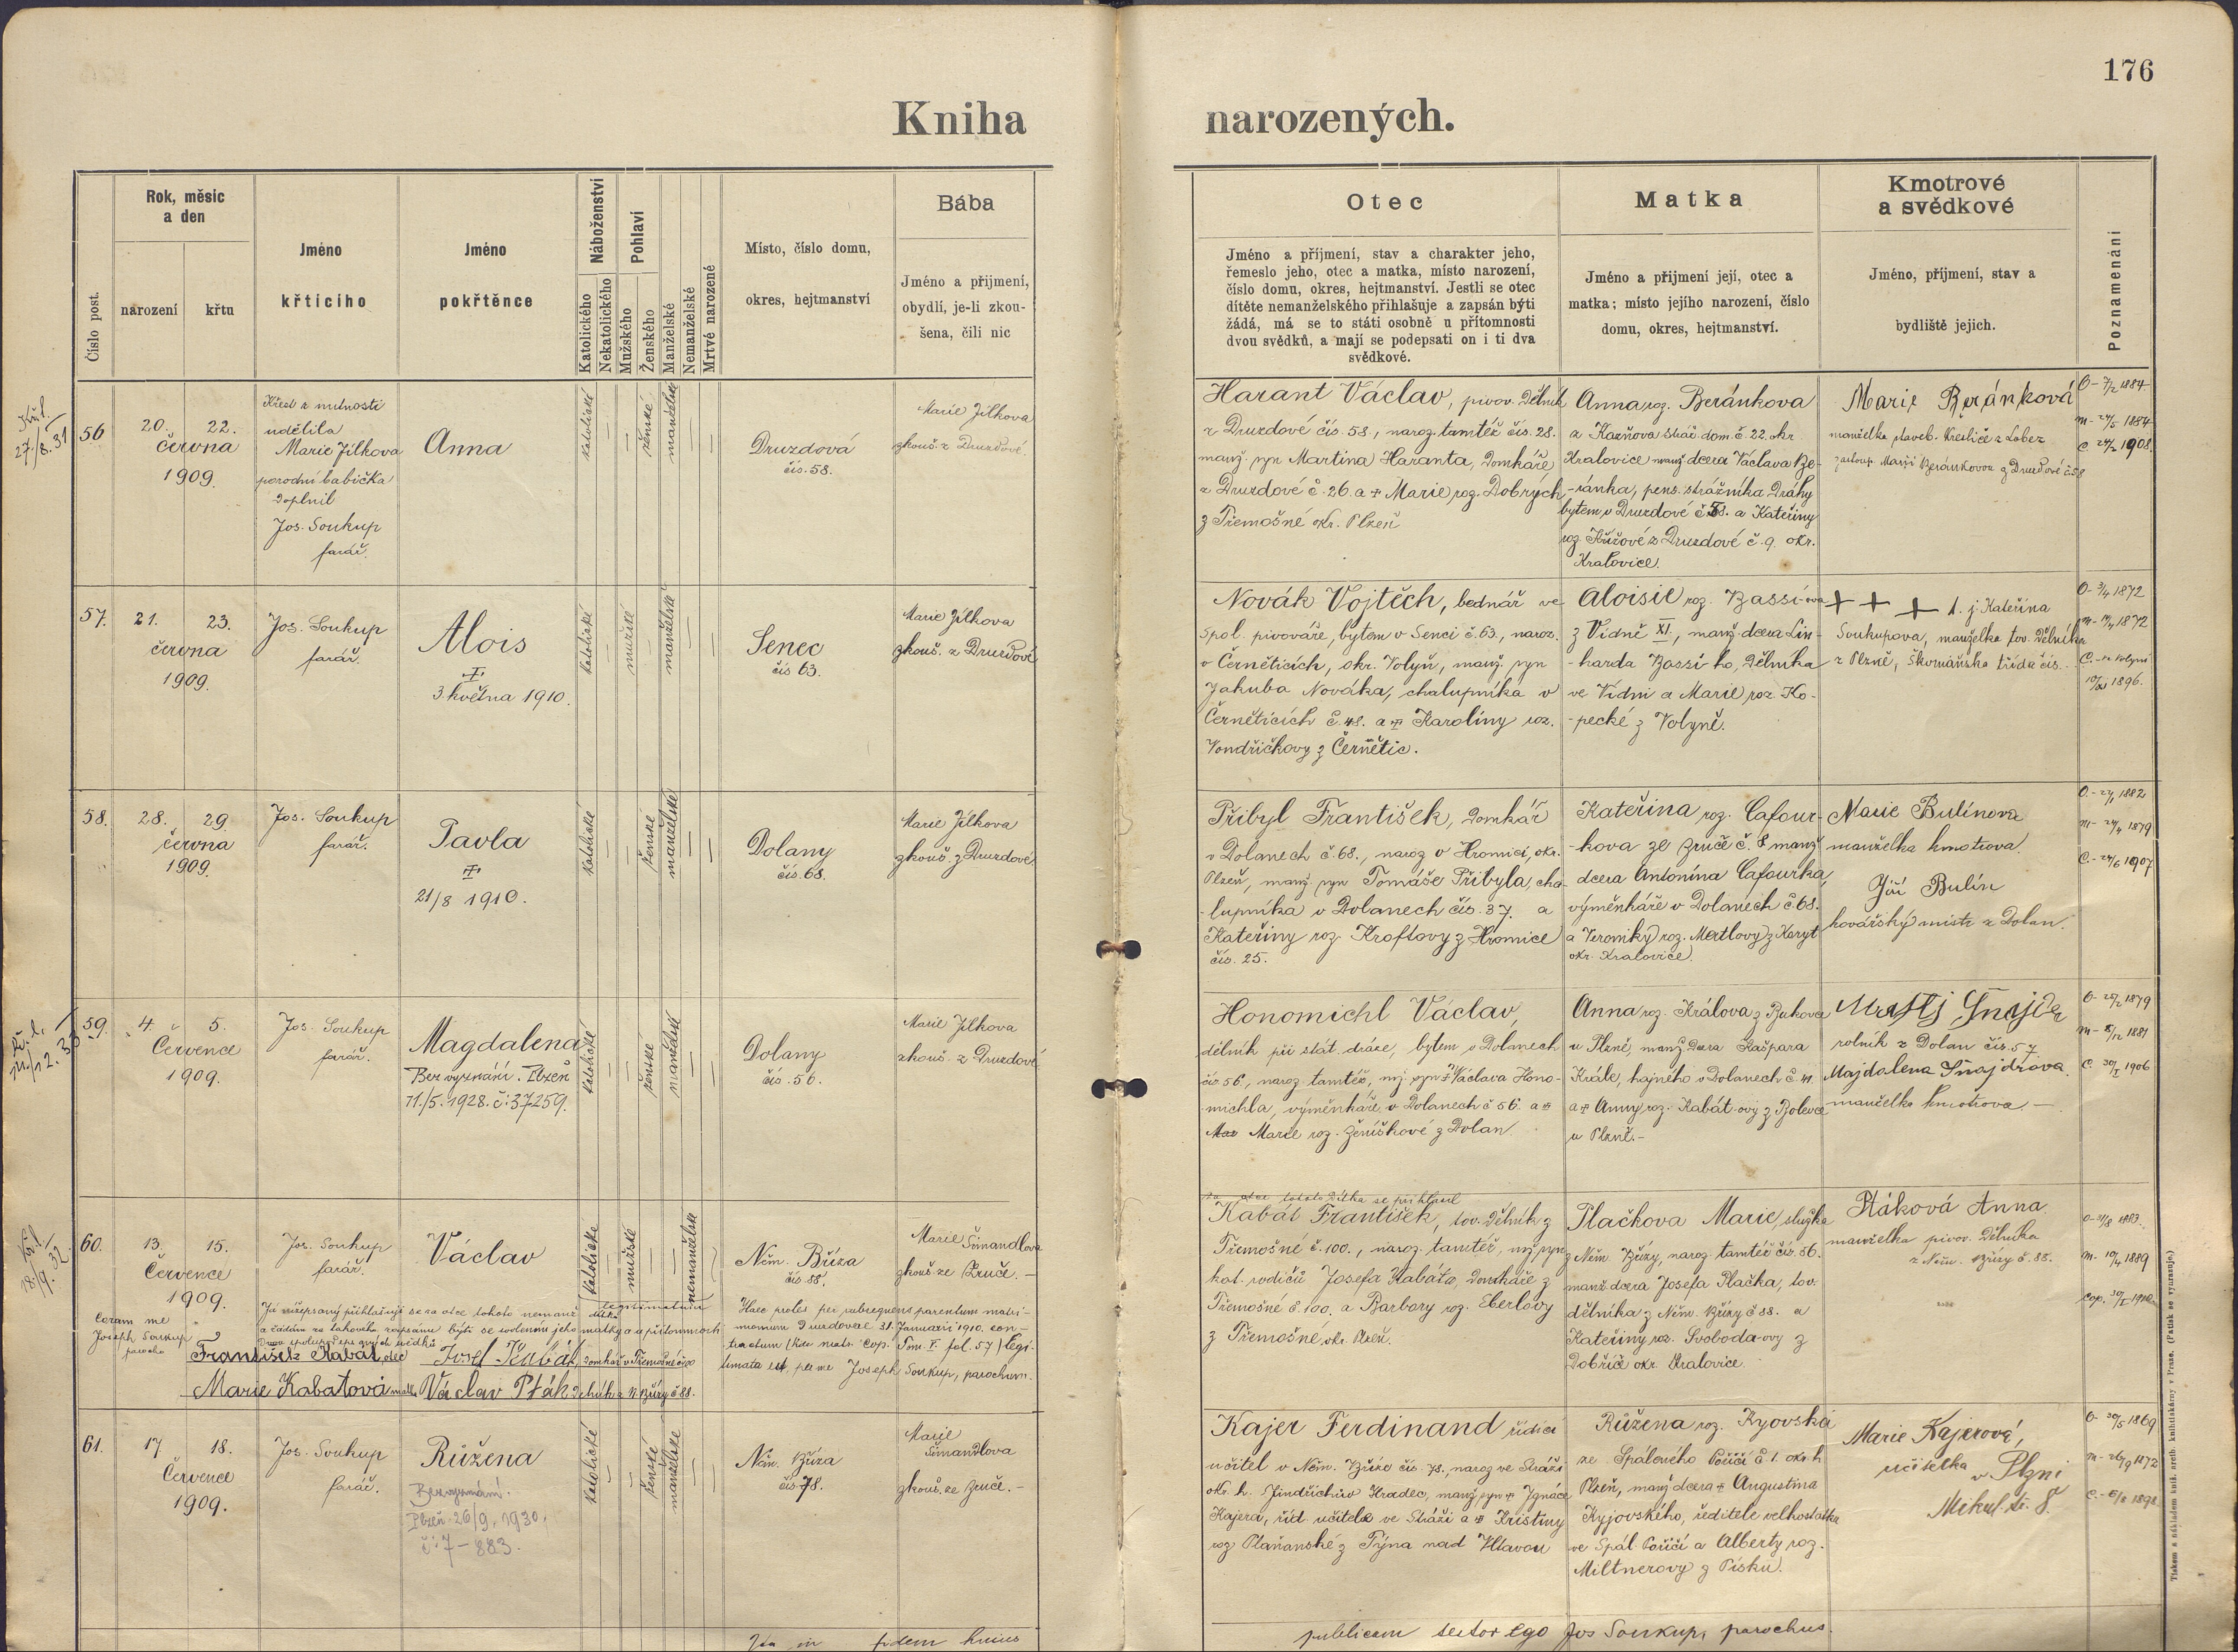 176
Kniha narozených.
Číslo post.
Rok, měsíc
a den
narození
křtu
Jméno
křtícího
Jméno
pokřtěnce
Náboženství
Katolického
Nekatolického
Pohlaví
Mužského
Ženského
Manželské
Nemanželské
Mrtvé narozené
Místo, číslo domu,
okres, hejtmanství
Bába
Jméno a přijmení,
obydlí, je-li zkou-
šena, čili nic
Otec
Jméno a příjmení, stav a charakter jeho,
řemeslo jeho, otec a matka, místo narození,
číslo domu, okres, hejtmanství. Jestli se otec
dítěte nemanželského přihlašuje a zapsán býti
žádá, má se to státi osobně u přítomnosti
dvou svědků, a mají se podepsati on i ti dva
svědkové.
Matka
Jméno a přijmení její, otec a
matka; místo jejího narození, číslo
domu, okres, hejtmanství.
Kmotrové
a svědkové
Jméno, příjmení, stav a
bydliště jejich.
Poznamenání
27./8.31
56
20. 22.
června
1909.
Křest z nutnosti
udělila
Marie Jílkova
porodní babička
Doplnil
Jos. Soukup
farář.
Anna
katolické
ženské
manželské
Druzdová
čís. 58.
Marie Jílkova
zkouš. z Druzdové.
Harant Václav, pivov. Dělník
z Druzdové čís. 58., naroz. tamtéž čís. 28.
manž. syn Martina Haranta, Domkáře
z Druzdové č. 26. a + Marie roz. Dobrých
z Třemošné okr. Plzeň
Anna roz. Beránkova
z Kaznova stráž. dom. č. 22. okr.
Kralovice manž. dcera Václava Be-
-ránka, pens. strážníka Dráhy
bytem v Druzdové č. 58. a Kateřiny
roz. Kůžové z Druzdové č. 9. okr.
Kralovice.
Marie Beránková
manželka
zastoup. Marií Beránkovou z Druzdové č. 58
O- 7/2 1884
m- 24/5 1884
C 24/2 1908.
57.
21. 23.
června
1909.
Jos. Soukup
farář.
Alois
+
3. května 1910.
katolické
mužské
manželské
Senec
čís 63.
Marie Jílkova
zkouš. z Druzdové
Novák Vojtěch, bednář ve
spol. pivováře, bytem v Senci č. 63., naroz.
v Černěticích, okr. Volyň, manž. syn
Jakuba Nováka, chalupníka v
Černěticích č. 48. a + Karoliny roz.
Vondřičkovy z Černětic.
Aloisie roz. Bassi-ova
z Vídně XI., manž. dcera Lin-
-harda Bassi-ho, dělníka
ve Vídni a Marie roz. Ko-
-pecké z Volyně.
+ + + t. j. Kateřina
Soukupova, manželka tov. Dělníka
z Plzně, Škrrnáňska třída čís.
O- 3/4 1872
m- 1872
C.- ve Volyni
1896.
58.
28. 29.
června
1909.
Jos. Soukup
farář.
Pavla
+
21/8 1910.
katolické
ženské
manželské
Dolany
čís. 68.
Marie Jílkova
zkouš. z Druzdové
Přibyl František, Domkář
v Dolanech č. 68., naroz v Hromici, okr.
Plzeň, manž. syn Tomáše Přibyla, cha-
-lupníka v Dolanech čís. 37. a
Kateřiny roz. Kroftovy z Hromice
čís. 25.
Kateřina roz. Cafour-
-kova ze Zruče č. 8 manž
dcera Antonína Cafourka,
výměnkáře v Dolanech č. 68.
a Veroniky roz. Mertlovy z Koryt
okr. Kralovice.
Marie Bulínova
manželka kmotrova.
Jiří Bulín
kovářský mistr z Dolan.
O.- 1882
m- 24/4 1879
C.- 24/6 1907
59.
4. 5.
Července
1909.
Jos. Soukup
farář.
Magdalena
Bez vyznání. Plzeň
11./5. 1928. č: 37259.
katolické
ženské
manželské
Dolany
čís. 56.
Marie Jílkova
zkouš. z Druzdové
Honomichl Václav,
dělník při stát. dráze, bytem v Dolanech
čís 56, naroz tamtéž, mj. syn + Václava Hono-
michla, výměnkáře, v Dolanech č 56. a +
Mar Marie roz. Ženíškové z Dolan.
Anna roz. Králova z Bukovce
u Plzně, manž. Dcera Kašpara
Krále, hajného v Dolanech č. 41.
a + Anny roz. Kabát-ovy z Bolevce
u Plzně.-
Matěj Šnajdr
rolník z Dolan čís. 57
Majdalena Šnajdrova.
manželka kmotrova -
O- 1879
m- 1881
C. 30/I 1906
60.
13. 15.
Července
1909.
Jos. Soukup
farář.
Václav
katolické
mužské
nemanželské
legitimatum
Něm. Bříza
čís. 88.
Marie Šimandlova
zkouš. ze Zruče. -
Coram me
Joseph. Soukup
parocho
Já nížepsaný přihlašuji se za otce tohoto nemanž. dítka
a žádám za takového zaepsánu býti se svolením jeho matky a u přítomnosti
Dvou spolupodepsaných svědků
František Kabát, otec Josef Kabát, domkář v Třemošné č. 100
Marie Kabatová matka Václav Pták Dělník z N. Břízy č 88.
Haec proles per subsequens parentum matri-
monium Druzdovae 31. Januarii 1910. con-
tractum (hic matr. Cop. Tom. V. fol. 57) legi-
timata est, per me Joseph Soukup, parochum.
za otce tohoto dítka se přihlásil
Kabát František, tov. Dělník z
Třemošné č. 100., naroz. tamtéž, mž. syn
kat. rodičů Josefa Kabáta, Domkáře z
Třemošné č. 100, a Barbory roz. Eberlovy
z Třemošné, okr. Plzeň.
Plačkova Marie, služka
z Něm. Břízy, naroz. tamtéž čís. 56.
manž. dcera Josefa Plačka, tov.
dělníka z Něm. Břízy č 88. a
Kateřiny roz. Svoboda-ovy z
Dobříč okr. Kralovice.
Ptáková Anna
manželka pivov. Dělníka
z Něm. Břízy č. 88.
O- 31/8 1883.
m- 10/4 1889
cop. 1910
61.
17 18.
Července
1909.
Jos. Soukup
farář.
Růžena
Bez vyznání.
Plzeň 26/9. 1930.
č: 7-883.
katolické
ženské
manželské
Něm. Bříza
čís. 78.
Marie
Šimandlova
zkouš. ze Zruče. -
Kajer Ferdinand řídící
učitel v Něm. Bříze čís. 78., naroz ve Stráži
okr. h. Jindřichův Hradec, manž. syn + Ignáce
Kajera, říd. učitele ve Stráži a + Kristiny
roz Plaňanské z Týna nad Vltavou
Růžena roz. Kyovská
ze Spáleného Poříčí č 1. okr. h
Plzeň, manž. dcera + Augustina
Kyjovského, ředitele velkostatku
ve Spál. Poříčí a Alberty roz.
Miltnerovy z Písku.
Marie Kajerová,
učitelka
v Plzni
Mikul. tř. 8.
O- 30/5 1869
m- 26/9 1872
C.- 1898
Ita in fidem huius
publicam testor ego Jos Soukup, parochus.